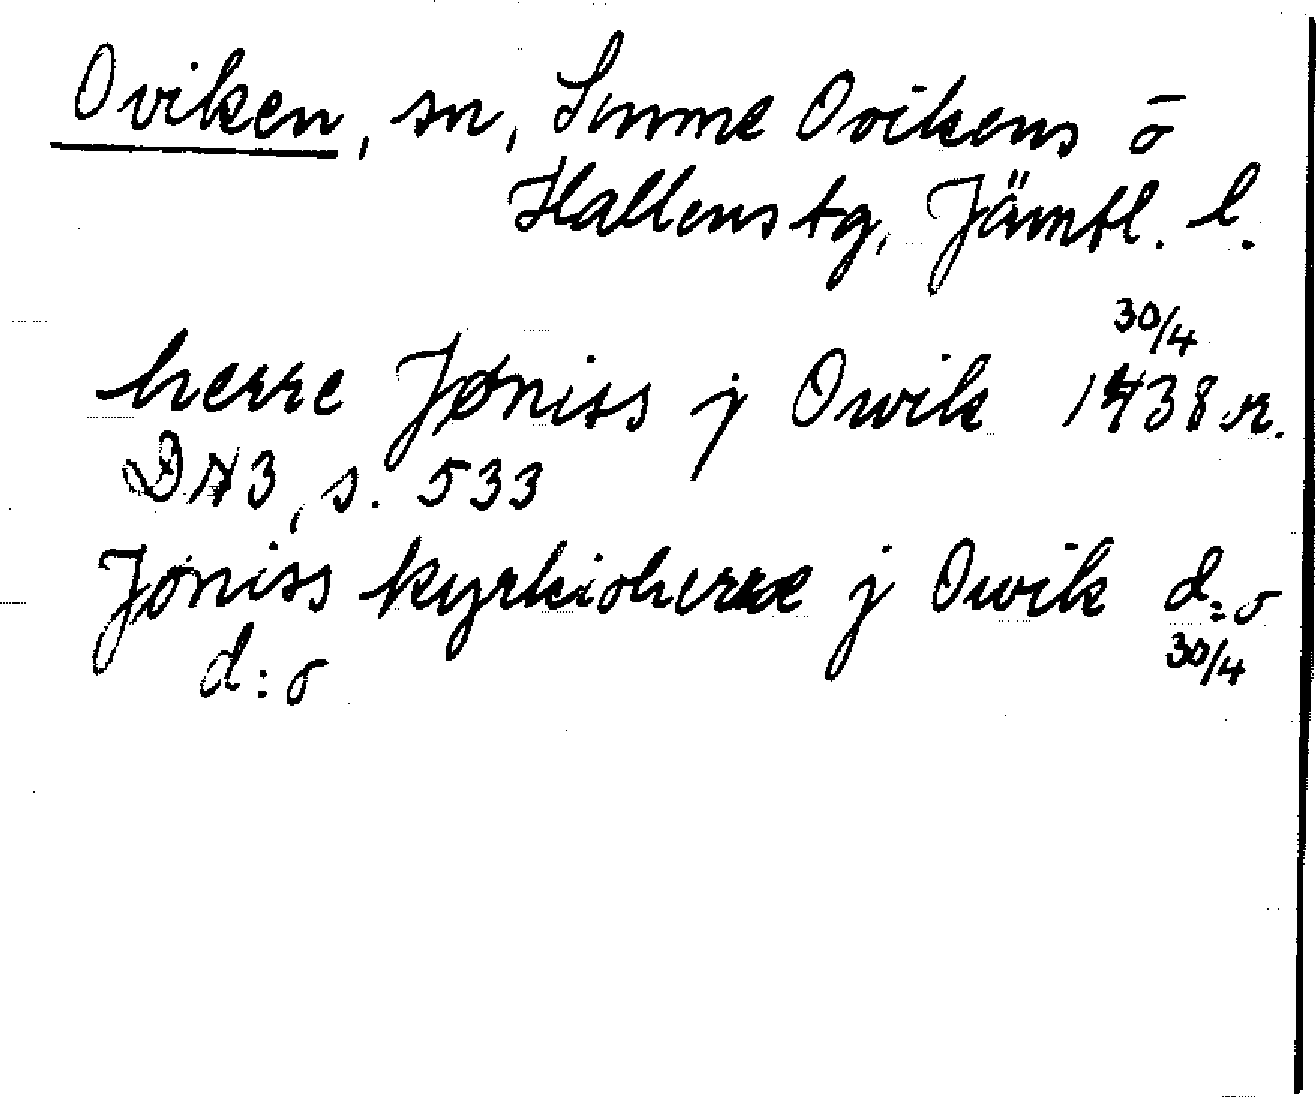 Oviken, sn, Sunne Ovikens o
Hallens tg, Jämtl. l.
30/4
herre Jøniss j Owik 1438 or.
DN 3, s. 533
Jøniss kyrkioherræ j Owik d:o
d:o 30/4